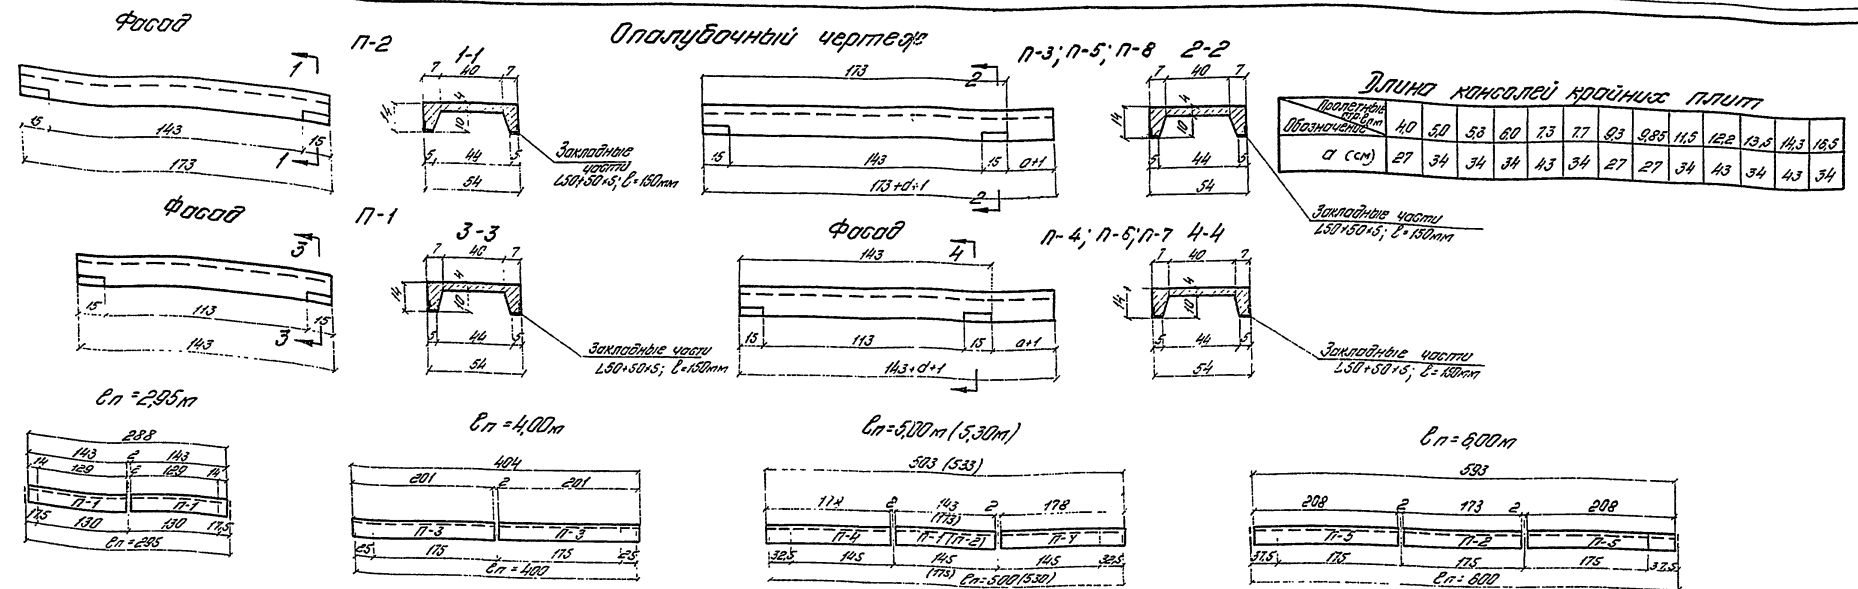 Опалубочный чертеж
Фасад
П-2
1-1
1
1
15
143
15
173
7 40 7
14
4
10
5 44 5
54
Закладные
части
L50+50×5; ℓ=150мм
П-3; П-5; П-8 2-2
173
2
2
15
143
15
a+1
173+a+1
7 40 7
14
4
10
5 44 5
54
Закладные части
L50+50×5; ℓ=150мм
Длина консолей крайних плит
Пролетные
Обозначение
4,0 5,0 5,3 6,0 7,3 7,7 9,3 9,85 11,5 12,2 13,5 14,3 16,5
a (см) 27 34 34 34 43 34 27 27 34 43 34 43 34
Фасад
П-1
3-3
3
3
15
113
15
143
7 40 7
14
4
10
5 44 5
54
Закладные части
L50+50×5; ℓ=150мм
Фасад
П-4; П-6; П-7 4-4
143
4
15
113
15
a+1
143+a+1
7 40 7
14
4
10
5 44 5
54
Закладные части
L50+50×5; ℓ=150мм
ℓп=2,95м
288
143 2 143
14 129 2 129 14
П-1 П-1
17,5 130 130 17,5
ℓп=295
ℓп=4,00м
404
201 2 201
П-3 П-3
25 175 175 25
ℓп=400
ℓп=5,00м (5,30м)
503 (533)
178 2 143 2 178
(173)
П-4 П-1 (П-2) П-4
32,5 145 145 145 32,5
(175)
ℓп=500 (530)
ℓп=6,00м
593
208 2 173 2 208
П-5 П-2 П-5
37,5 175 175 175 37,5
ℓп=600